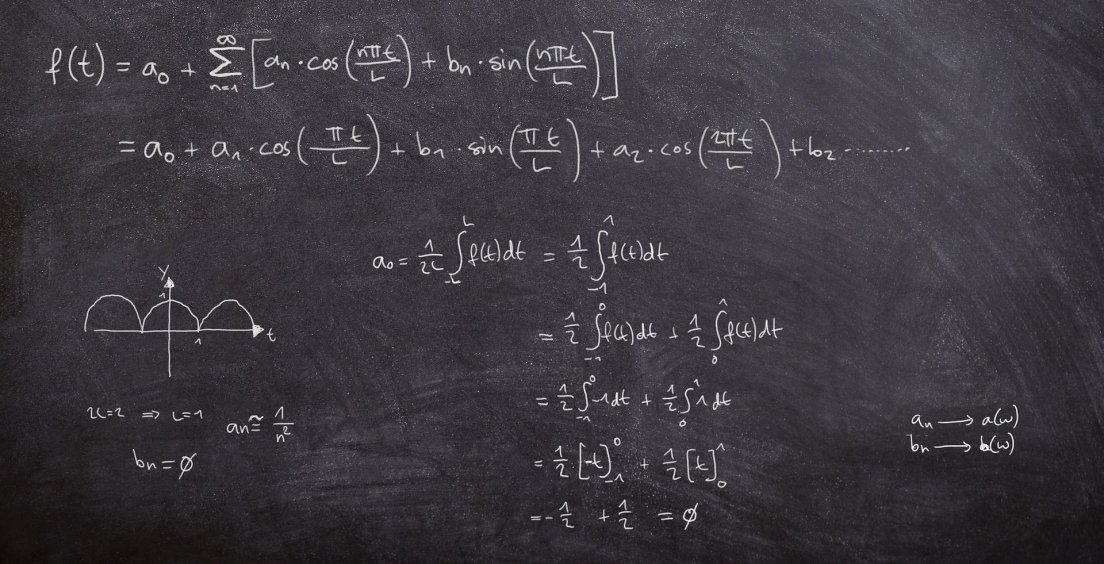 f(t) = a₀ + ∞∑n=1 [an · cos(nπt/L) + bn · sin(nπt/L)]
= a₀ + a₁ · cos(πt/L) + b₁ · sin(πt/L) + a₂ · cos(2πt/L) + b₂ ........
a₀ = 1/2L ∫-L^L f(t)dt = 1/2 ∫-1^1 f(t)dt
= 1/2 ∫-1^0 f(t)dt + 1/2 ∫0^1 f(t)dt
= 1/2 ∫-1^0 -1dt + 1/2 ∫0^1 1dt
= 1/2 [-t]-1^0 + 1/2 [t]0^1
= -1/2 + 1/2 = ∅
y
1
1
t
2L=2 ⇒ L=1
an ≅ 1/n²
bn = ∅
an → a(ω)
bn → b(ω)